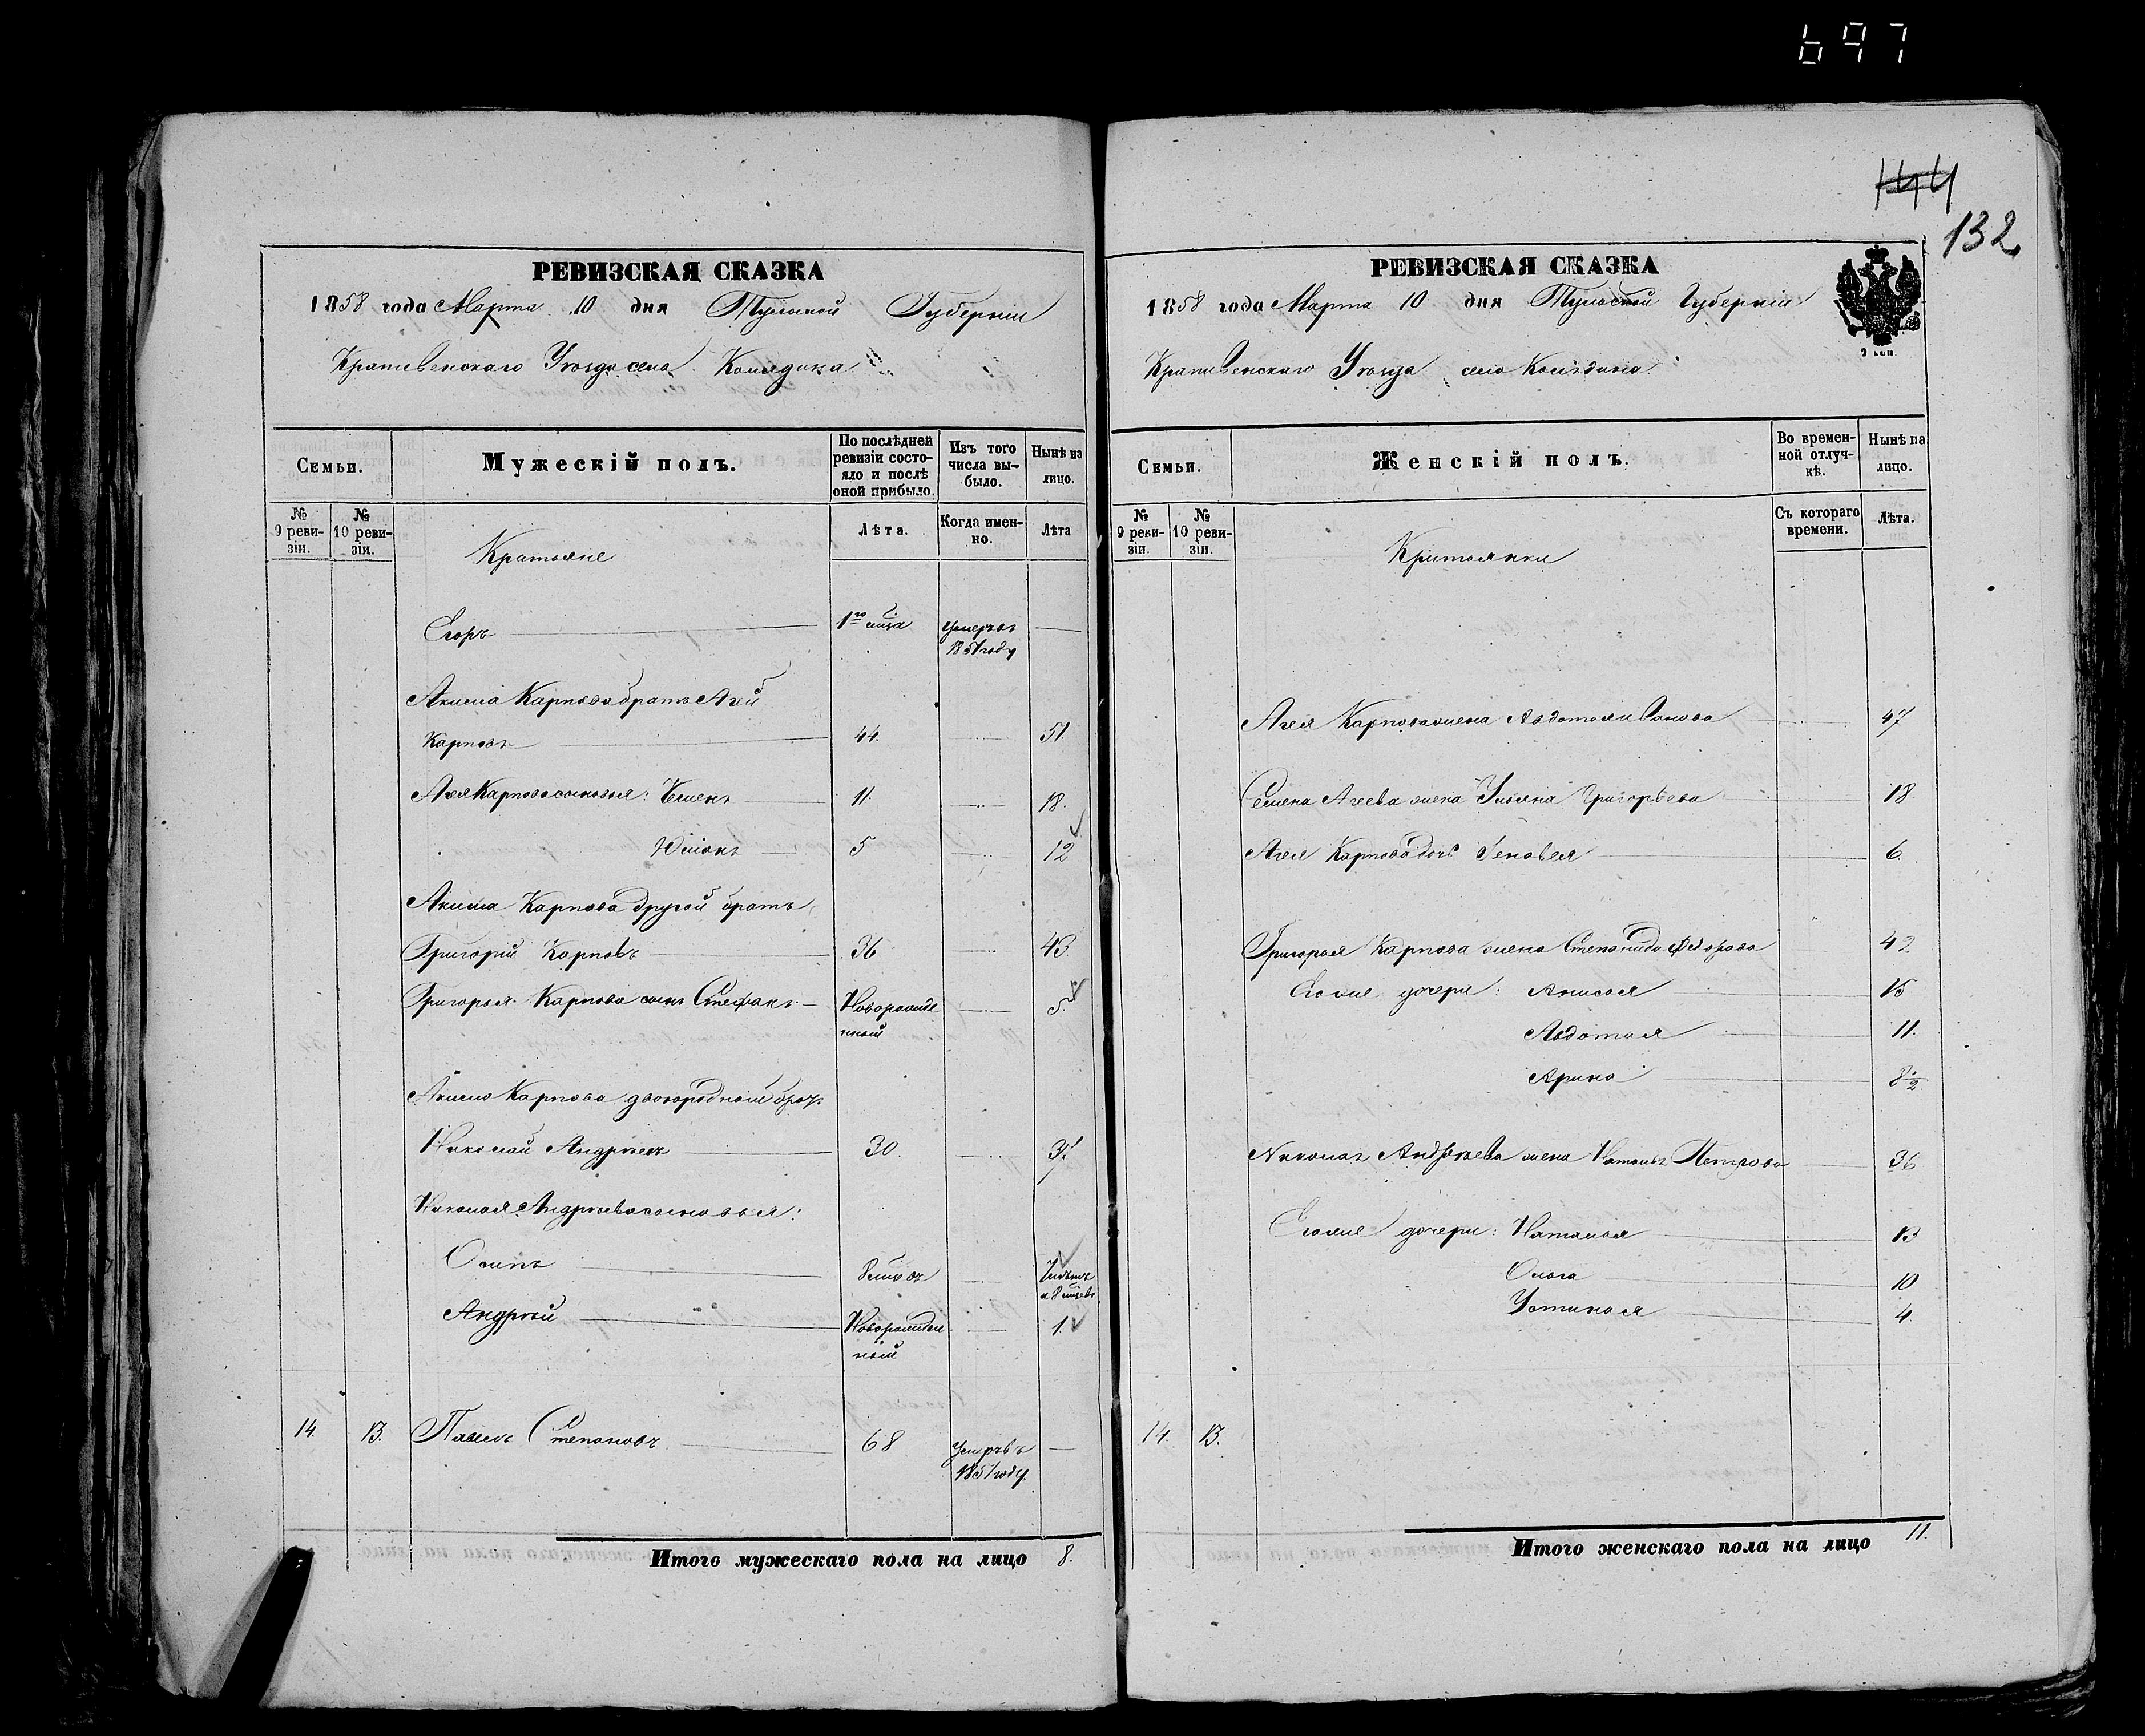 697
144
132
РЕВИЗСКАЯ СКАЗКА
1858 года Марта 10 дня Тульской Губерніи
Крапивенскаго Уѣзда села
Семьи.
Мужескій полъ.
По послѣдней ревизіи состояло и послѣ оной прибыло.
Изъ того числа вы-
было.
Нынѣ на лицо.
№ 9 реви-
зіи.
№ 10 реви-
зіи.
Лѣта.
Когда имен-
но.
Лѣта
Крестьяне
Егоръ 1го Умеръ въ 1851 году
Акима Карпова братъ Агѣй
Карповъ 44. 51.
Агея Карпова сыновья: Семенъ 11. 18.
5 12
Акима Карпова другой братъ
Григорій Карповъ 36 43.
Григорья Карпова сынъ Стефанъ Новорожде
нный 5.
Акима Карпова двоюродный братъ
Николай Андреевъ 30. 37
Николая Андреева сыновья:
Осипъ
Андрей Новорожден
ный 1.
14. 13. Павелъ Степановъ 68 Умеръ въ
1851 году
Итого мужескаго пола на лицо 8.
РЕВИЗСКАЯ СКАЗКА
1858 года Марта 10 дня Тульской Губерніи
2 коп.
Крапивенскаго Уѣзда село
Семьи.
Женскій полъ.
Во времен-
ной отлуч-
кѣ.
Нынѣ на лицо.
№ 9 реви-
зіи.
№ 10 реви-
зіи.
Съ котораго времени.
Лѣта.
Крестьянки
Агея Карпова жена Авдотья Иванова 47
Семена Агеева жена Ульяна Григорьева 18
Агея Карпова дочь 6.
Григорья Карпова жена Степанида Федорова 42
Его же дочери: Анисья 15
Авдотья 11.
Арина 8½
Николая Андреева жена Петрова 36
Его же дочери: Наталья 13
Ольга 10
Устинья 4.
14. 13.
Итого женскаго пола на лицо 11.